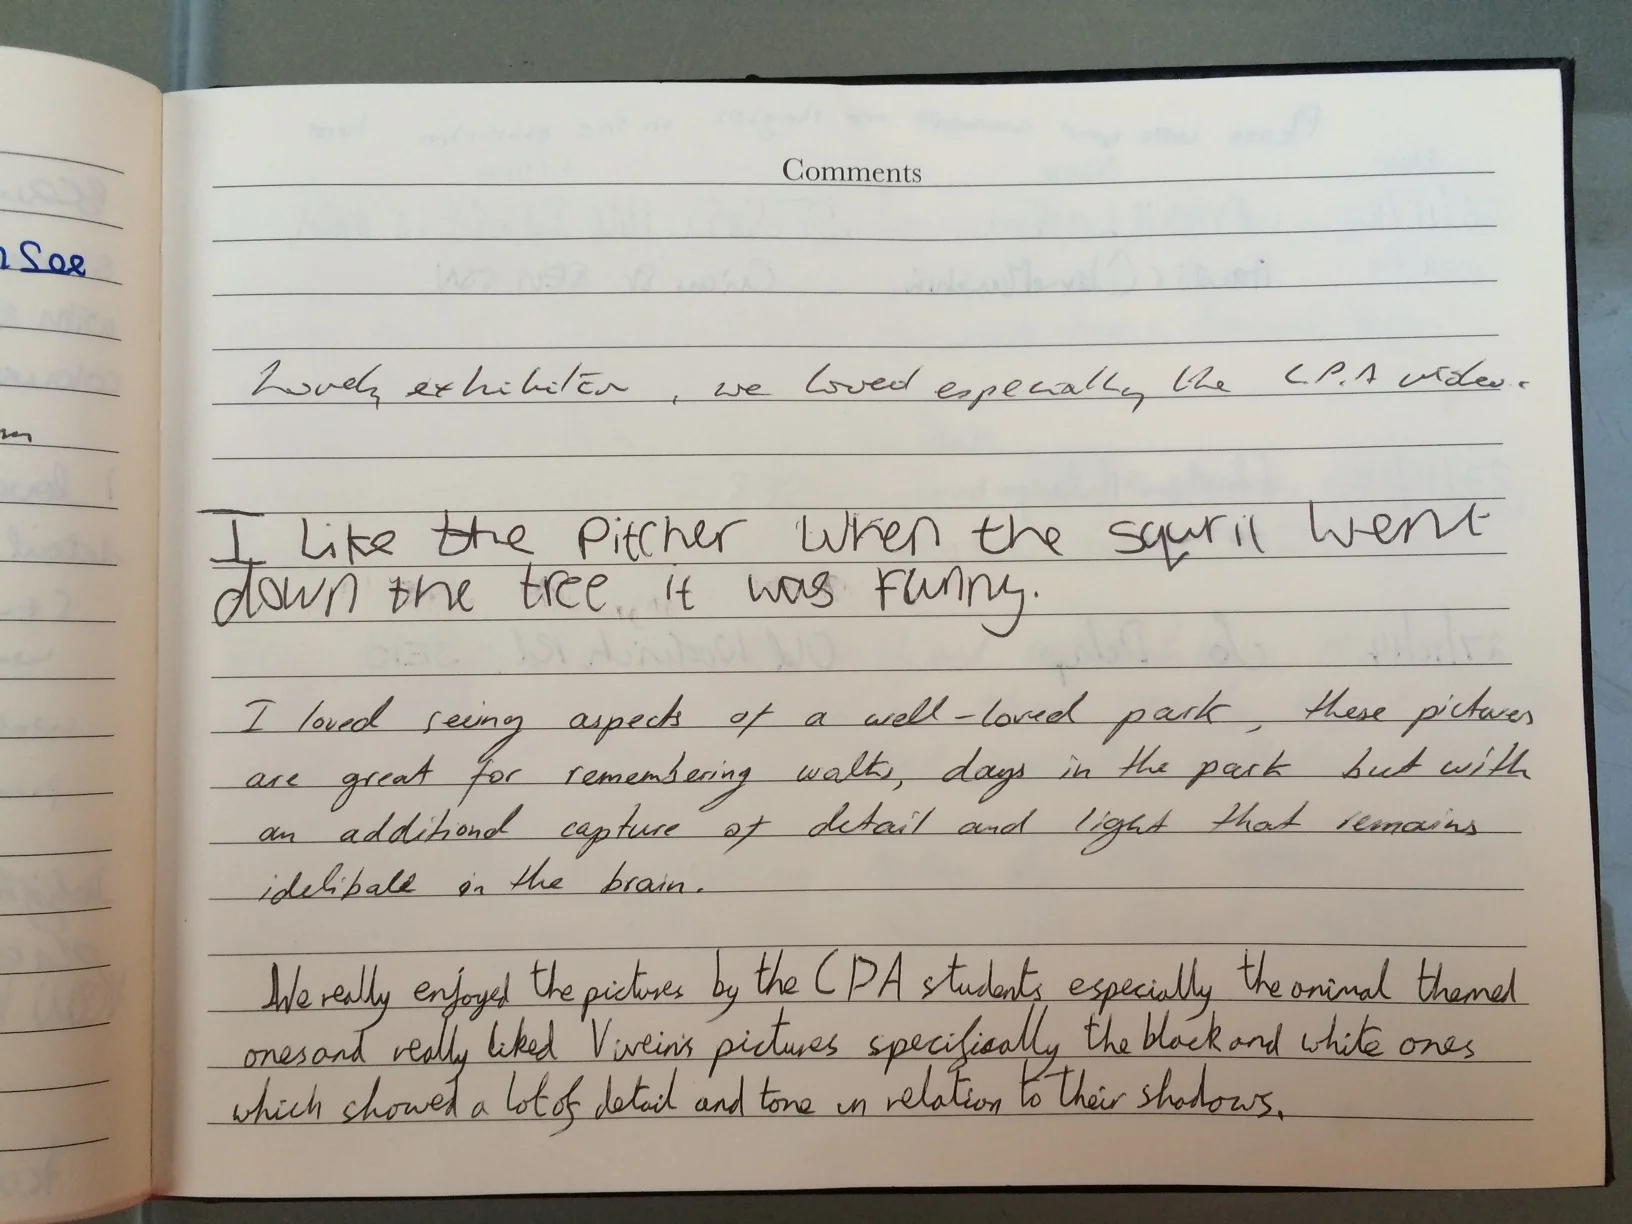 Comments
Lovely exhibition, we loved especially the C.P.A video.
I like the Pitcher when the squril went
down the tree it was funny.
I loved seeing aspects of a well-loved park, these pictures
are great for remembering walks, days in the park but with
an additional capture of detail and light that remains
idelibale in the brain.
We really enjoyed the pictures by the CPA students especially the animal themed
ones and really liked Vivein's pictures specifically the black and white ones
which showed a lot of detail and tone in relation to their shadows.